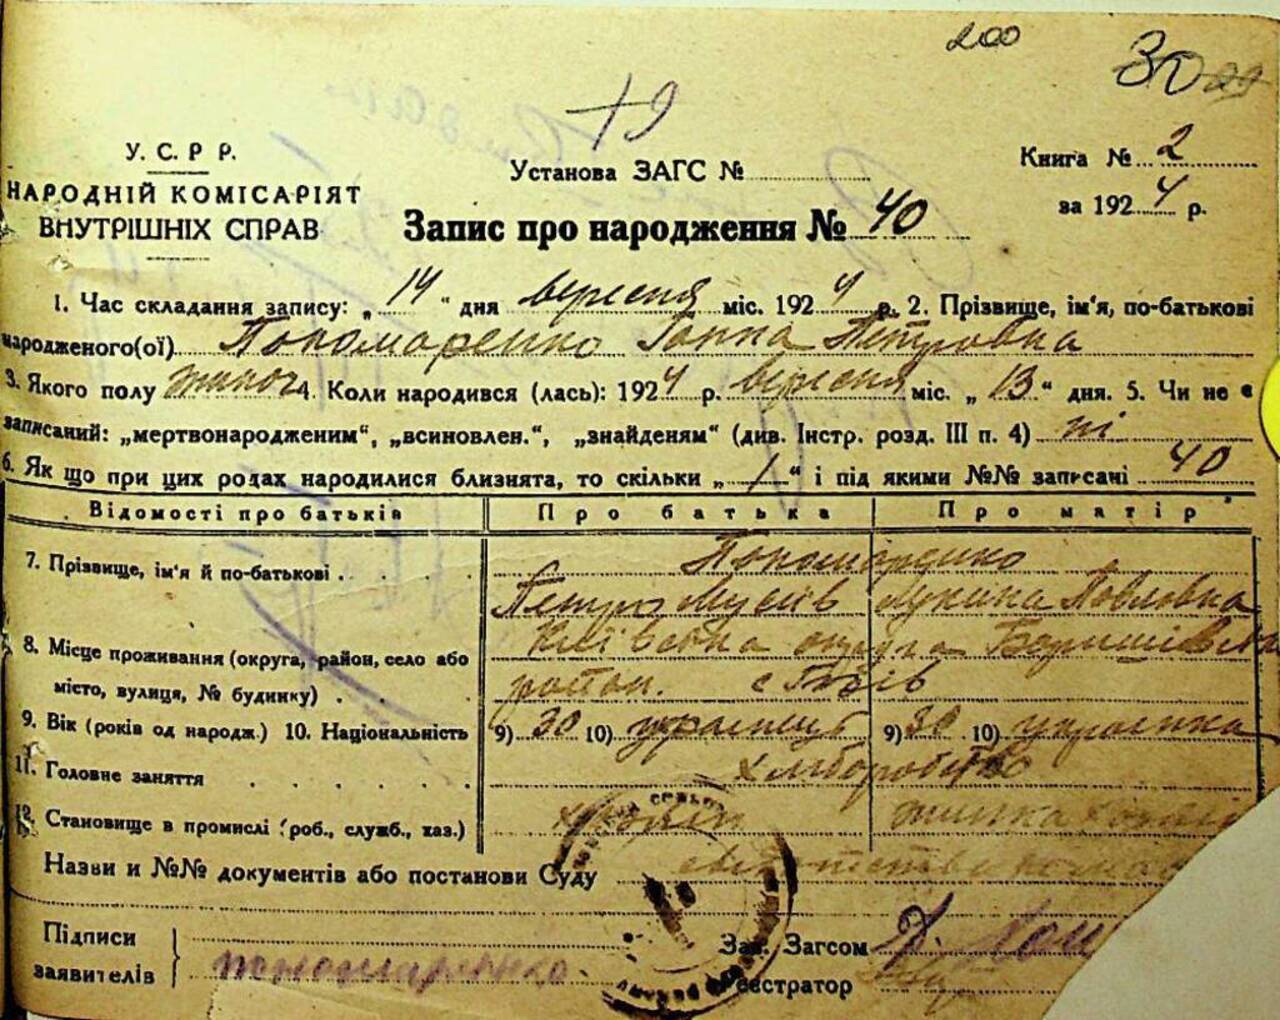 200
30
+9
У. С. Р Р.
НАРОДНІЙ КОМІСАРІЯТ
ВНУТРІШНІХ СПРАВ
Установа ЗАГС №
Книга № 2
за 1924 р.
Запис про народження № 40
1. Час складання запису: „14“ дня вересня міс. 1924 р. 2. Прізвище, ім'я, по-батькові
народженого(ої) Пономаренко Ганна Петровна
3. Якого полу жиноч 4. Коли народився (лась): 1924 р. вересня міс. „13“ дня. 5. Чи не є
записаний: „мертвонародженим“, „всиновлен.“, „знайденям“ (див. Інстр. розд. III п. 4) ні
6. Як що при цих родах народилися близнята, то скільки „1“ і під якими №№ записані 40
Відомості про батьків Про батька Про матір
7. Прізвище, ім'я й по-батькові Пономаренко
Петро Мусіїв Лукина Павловна
8. Місце проживання (округа, район, село або Київська округа
місто, вулиця, № будинку) район. с
9. Вік (років од народж.) 10. Національність 9) 30 10) украінець 9) 30 10) украінка
11. Головне заняття хліборобство
12. Становище в промислі (роб., служб., хаз.) жинка
Назви и №№ документів або постанови Суду
Підписи
заявителів Пономаренко
Зав. Загсом
Реєстратор